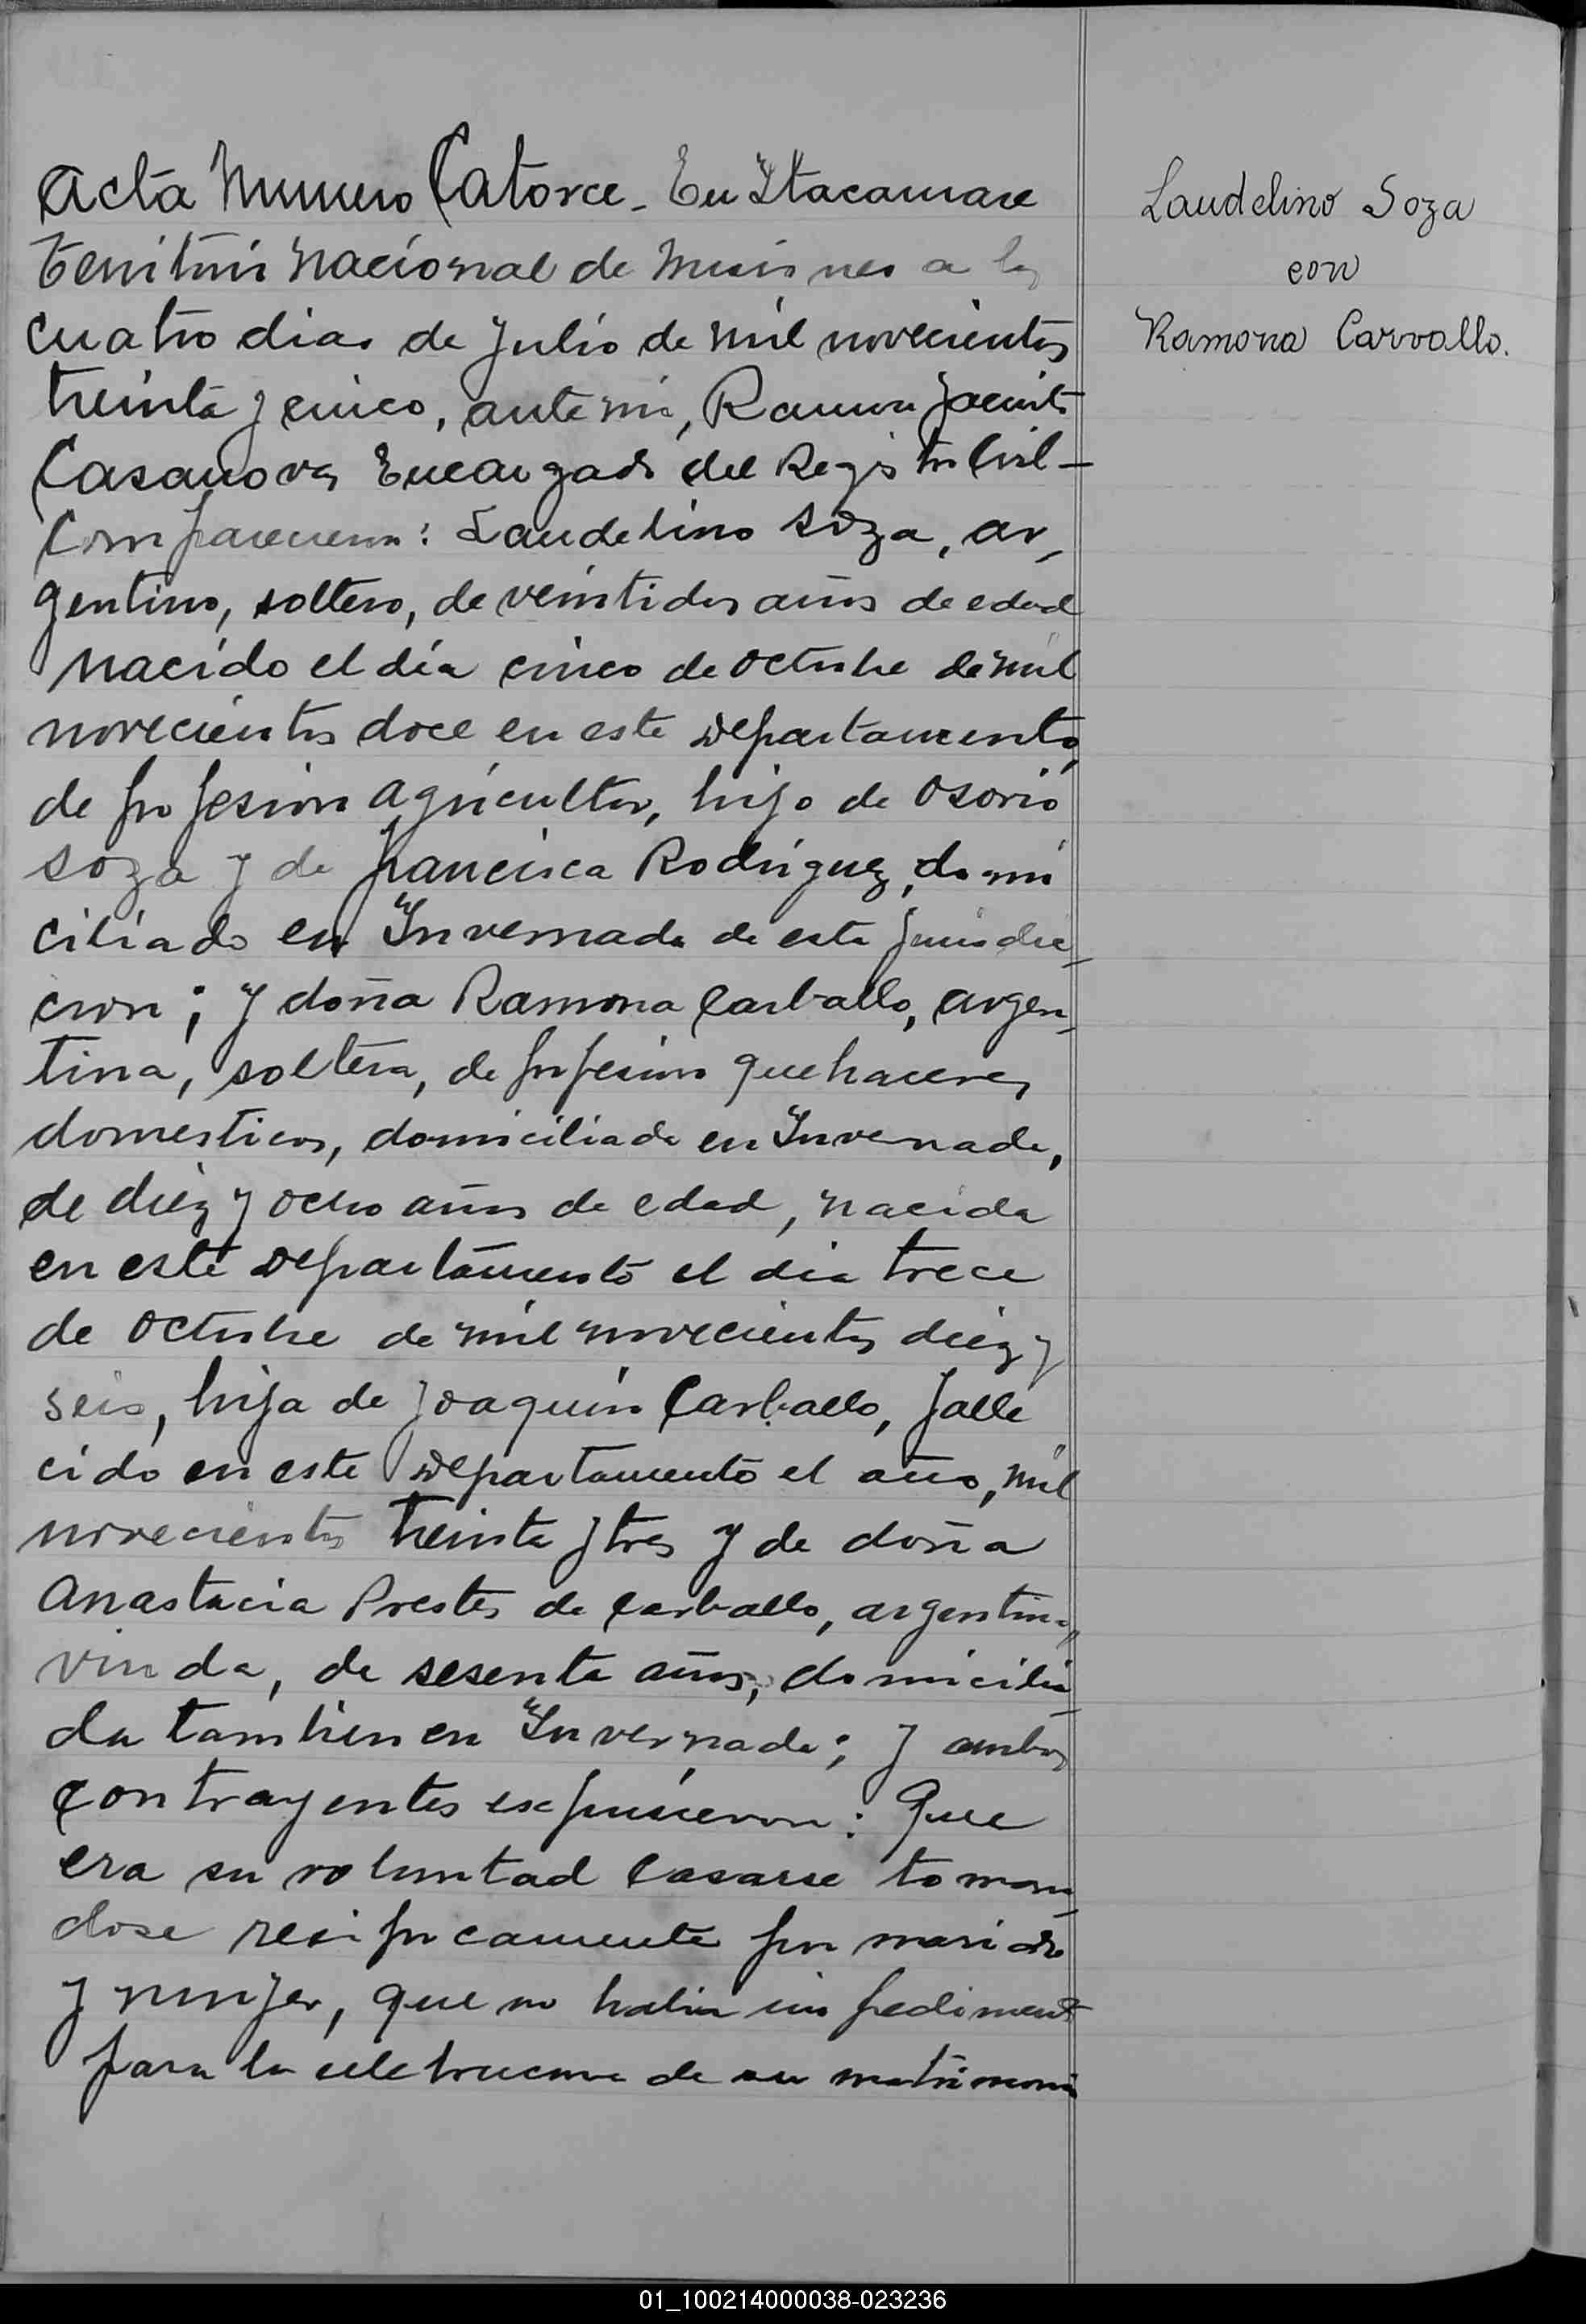 Acta Numero Catorce_ En Itacaruare
Territorio Nacional de Misiones a los
cuatro dias de Julio de mil novecientos
treinta y cinco, ante mi, Ramon Jacinto
Casanova, Encargado del Registro Civil—
Comparecieron: Laudelino Soza, ar-
gentino, soltero, de veintidos años de edad
nacido el día cinco de octubre de mil
novecientos doce en este Departamento,
de profesion agricultor, hijo de Osorio
Soza y de Francisca Rodriguez, domi
ciliado en Invernada de esta jurisdic-
cion; y doña Ramona Carballo, argen-
tina, soltera, de profesion quehaceres
domesticos, domiciliada en Invernada,
de diez y ocho años de edad, nacida
en este Departamento el dia trece
de octubre de mil novecientos diez y
seis, hija de Joaquin Carballo, falle
cido en este Departamento el año, mil
novecientos treinta y tres y de doña
Anastacia Prestes de Carballo, argentina,
viuda, de sesenta años, domicilia-
da tambien en Invernada; y ambos
contrayentes expusieron: Que
era su voluntad casarse toman-
dose reciprocamente por marido
y mujer, que no habia impedimento
para la celebracion de su matrimonio
Laudelino Soza
con
Ramona Carvallo.
01_100214000038-023236